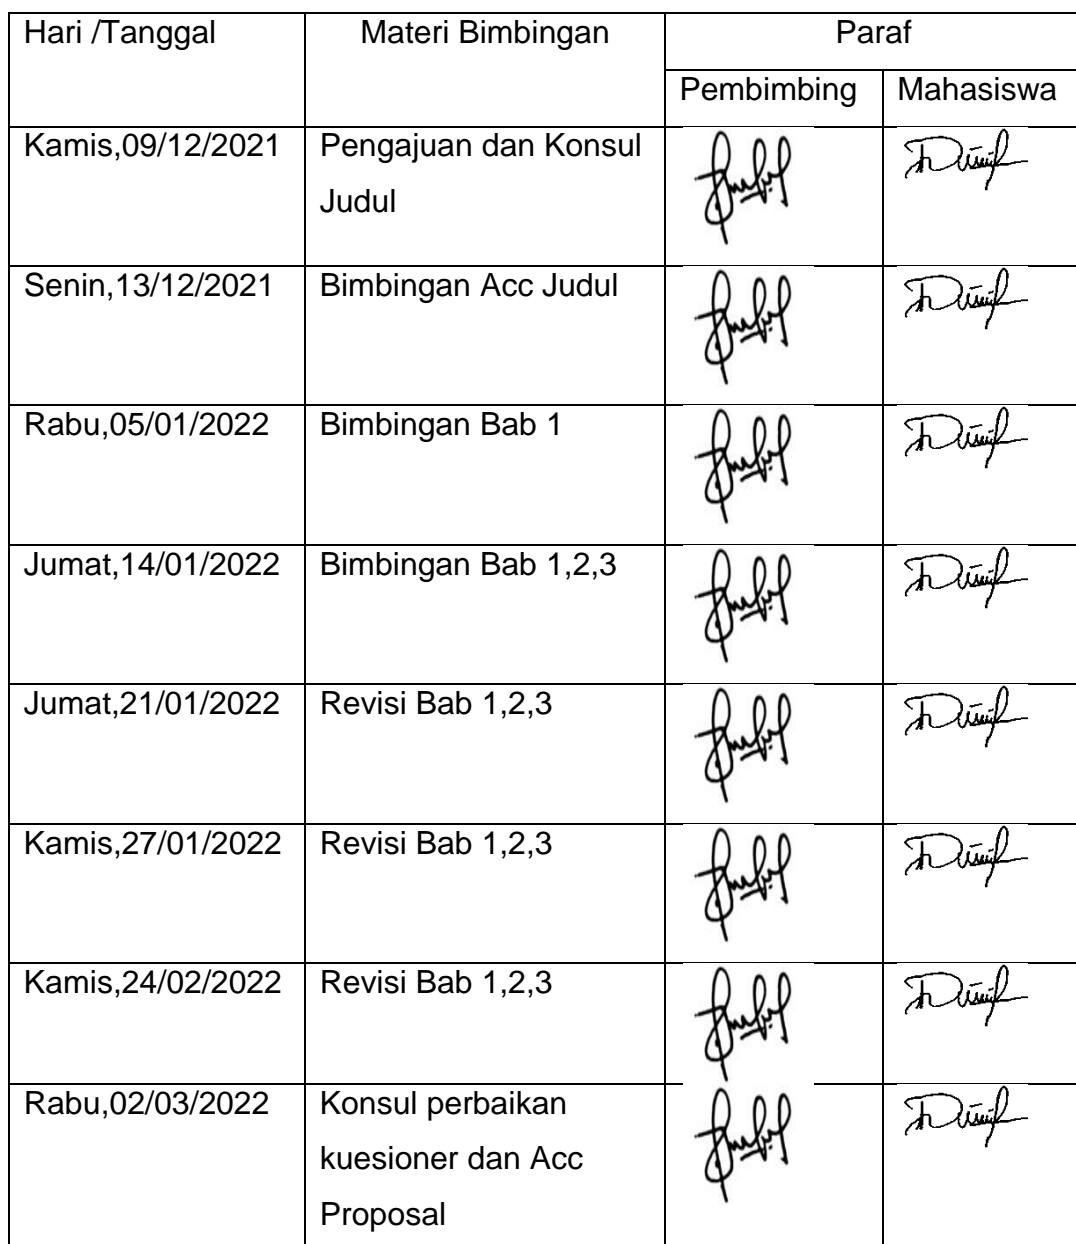 Hari /Tanggal Materi Bimbingan Paraf
Pembimbing Mahasiswa
Kamis,09/12/2021 Pengajuan dan Konsul
Judul
Senin,13/12/2021 Bimbingan Acc Judul
Rabu,05/01/2022 Bimbingan Bab 1
Jumat,14/01/2022 Bimbingan Bab 1,2,3
Jumat,21/01/2022 Revisi Bab 1,2,3
Kamis,27/01/2022 Revisi Bab 1,2,3
Kamis,24/02/2022 Revisi Bab 1,2,3
Rabu,02/03/2022 Konsul perbaikan
kuesioner dan Acc
Proposal